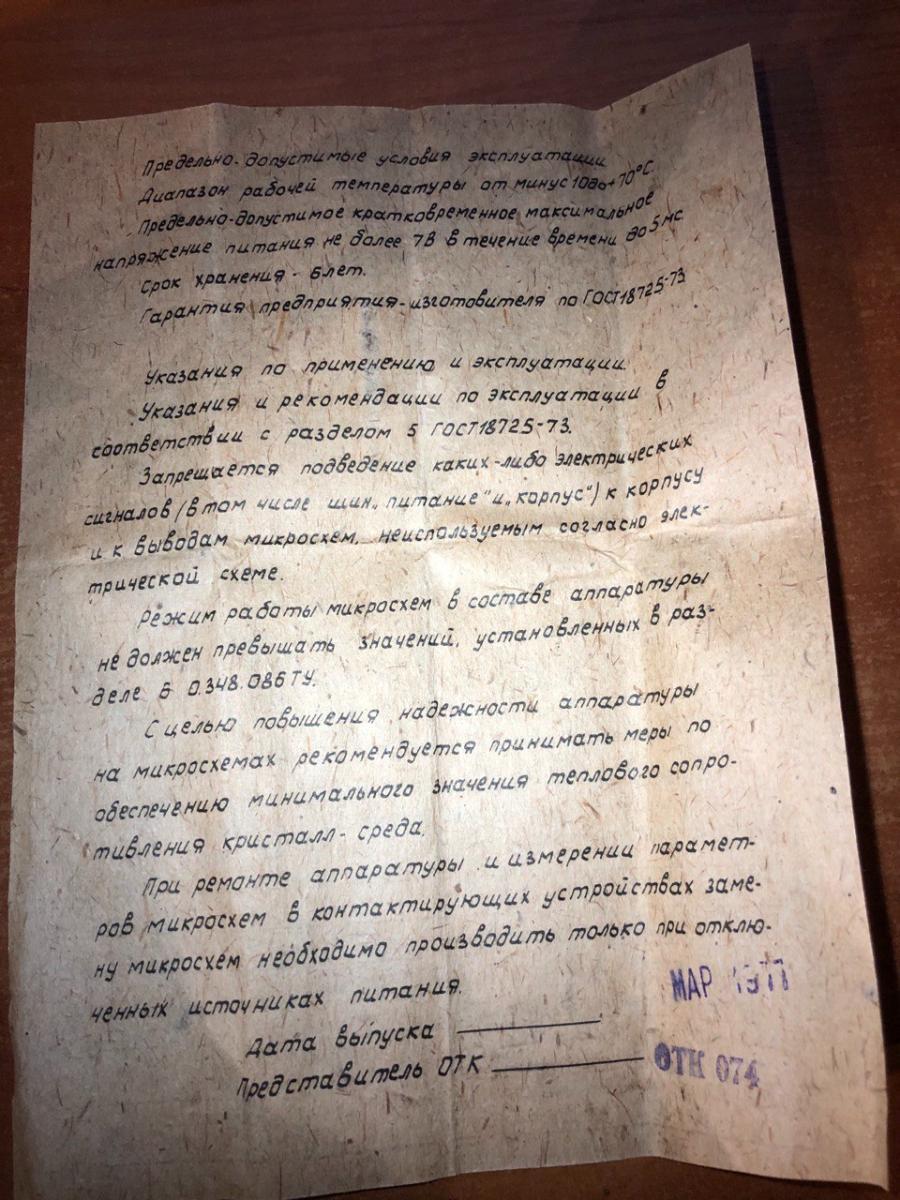 Предельно-допустимые условия эксплуатации
Диапазон рабочей температуры от минус 10 до +70°С.
Предельно-допустимое кратковременное максимальное
напряжение питания не более 7В в течение времени до 5 мс
Срок хранения - 6 лет.
Гарантия предприятия-изготовителя по ГОСТ18725-73
Указания по применению и эксплуатации
Указания и рекомендации по эксплуатации в
соответствии с разделом 5 ГОСТ18725-73.
Запрещается подведение каких-либо электрических
сигналов (в том числе шин „питание" и „корпус") к корпусу
и к выводам микросхем, неиспользуемым согласно элек-
трической схеме.
Режим работы микросхем в составе аппаратуры
не должен превышать значений, установленных в раз-
деле 6 0.348.086ТУ.
С целью повышения надежности аппаратуры
на микросхемах рекомендуется принимать меры по
обеспечению минимального значения теплового сопро-
тивления кристалл-среда.
При ремонте аппаратуры и измерении парамет-
ров микросхем в контактирующих устройствах заме-
ну микросхем необходимо производить только при отклю-
ченных источниках питания.
МАР 1977
Дата выпуска
Представитель ОТК
ОТК 074